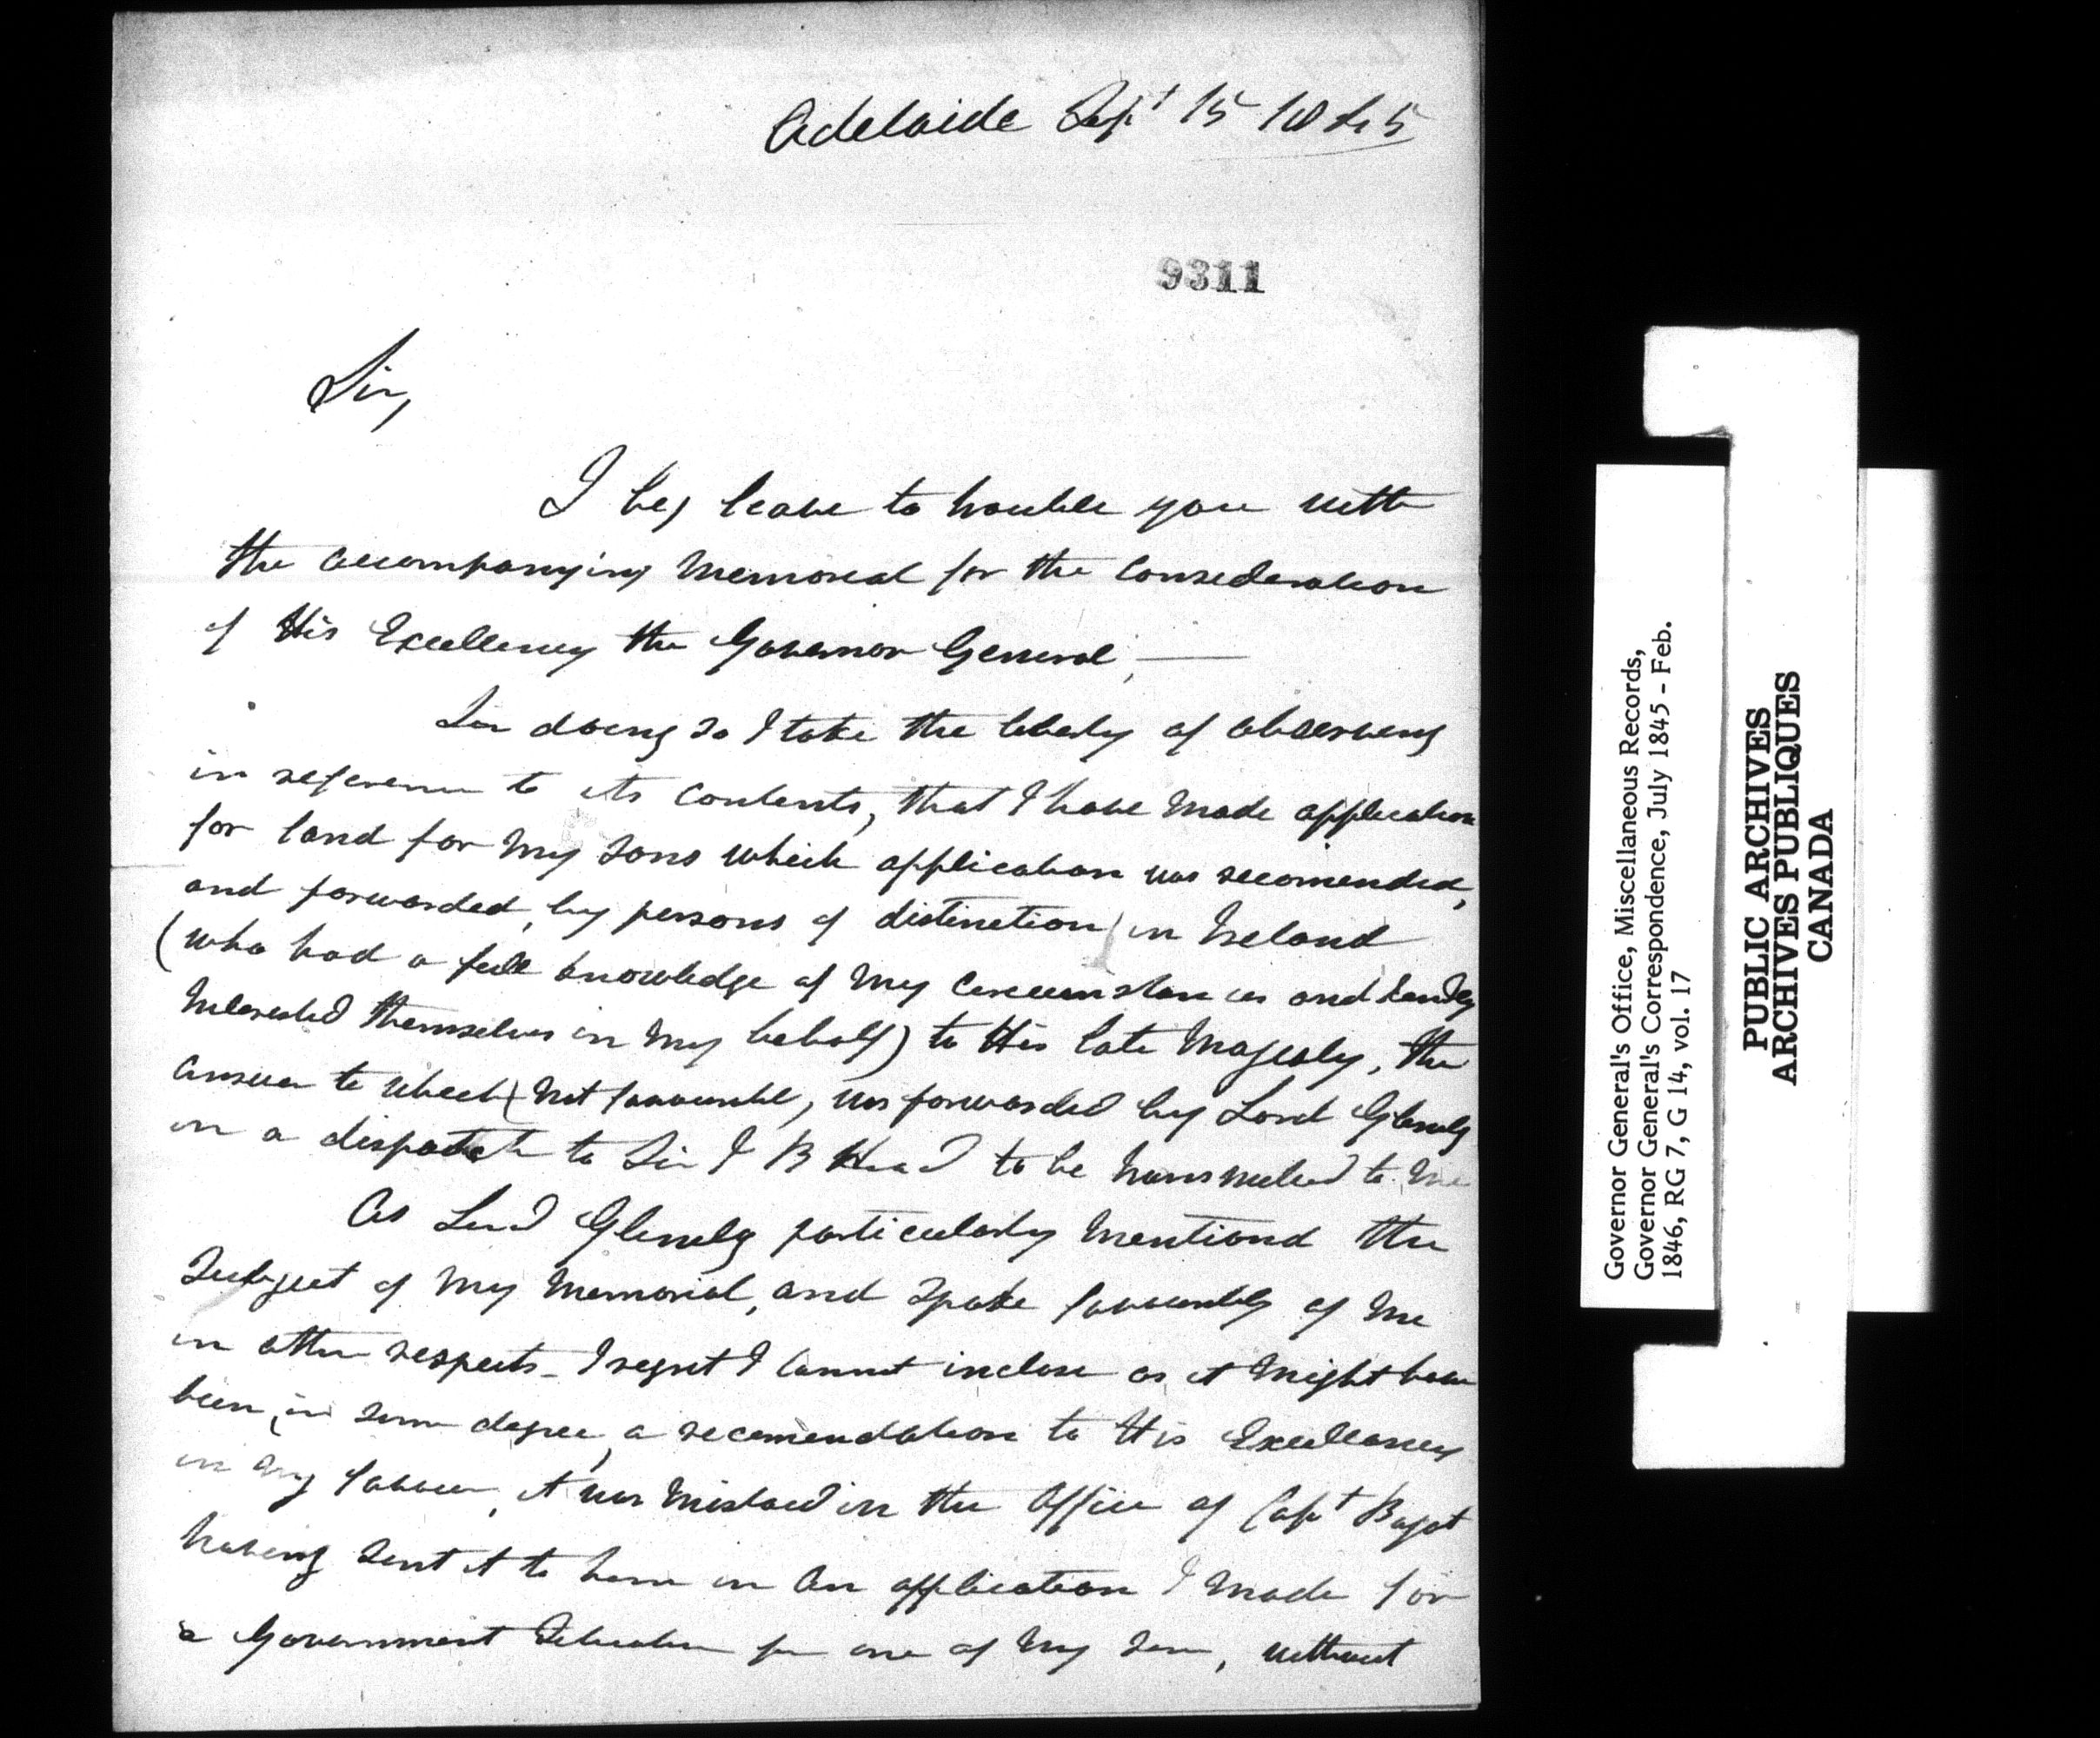 Adelaide Sept 15 1845
9311
Sir,
I beg leave to trouble you with
the accompanying Memorial for the Consideration
of His Excellency the Governor General,
In doing so I take the liberty of observing
in reference to its Contents, that I have made application
for land for My Sons which application was recomended,
and forwarded, by persons of distinction in Ireland
(who had a full knowledge of My Circumstances and kindly
Interested themselves in My behalf) to His late Majesty, the
answer to which (not favourable, was forwarded by Lord Glenelg
in a dispatch to Sir F B Head to be transmitted to Me
As Lord Glenelg particularly Mentiond the
Subject of My Memorial, and Spoke favourably of Me
in other respects - I regret I Cannot inclose as it Might have
been, in some degree, a recomendation to His Excellency
in My favour, it was Mislaid in the Office of Capt Bagot
having Sent it to him in An application I Made for
a Government Situation for one of My Sons, without
Governor General's Office, Miscellaneous Records,
Governor General's Correspondence, July 1845 - Feb.
1846, RG 7, G 14, vol. 17
PUBLIC ARCHIVES
ARCHIVES PUBLIQUES
CANADA